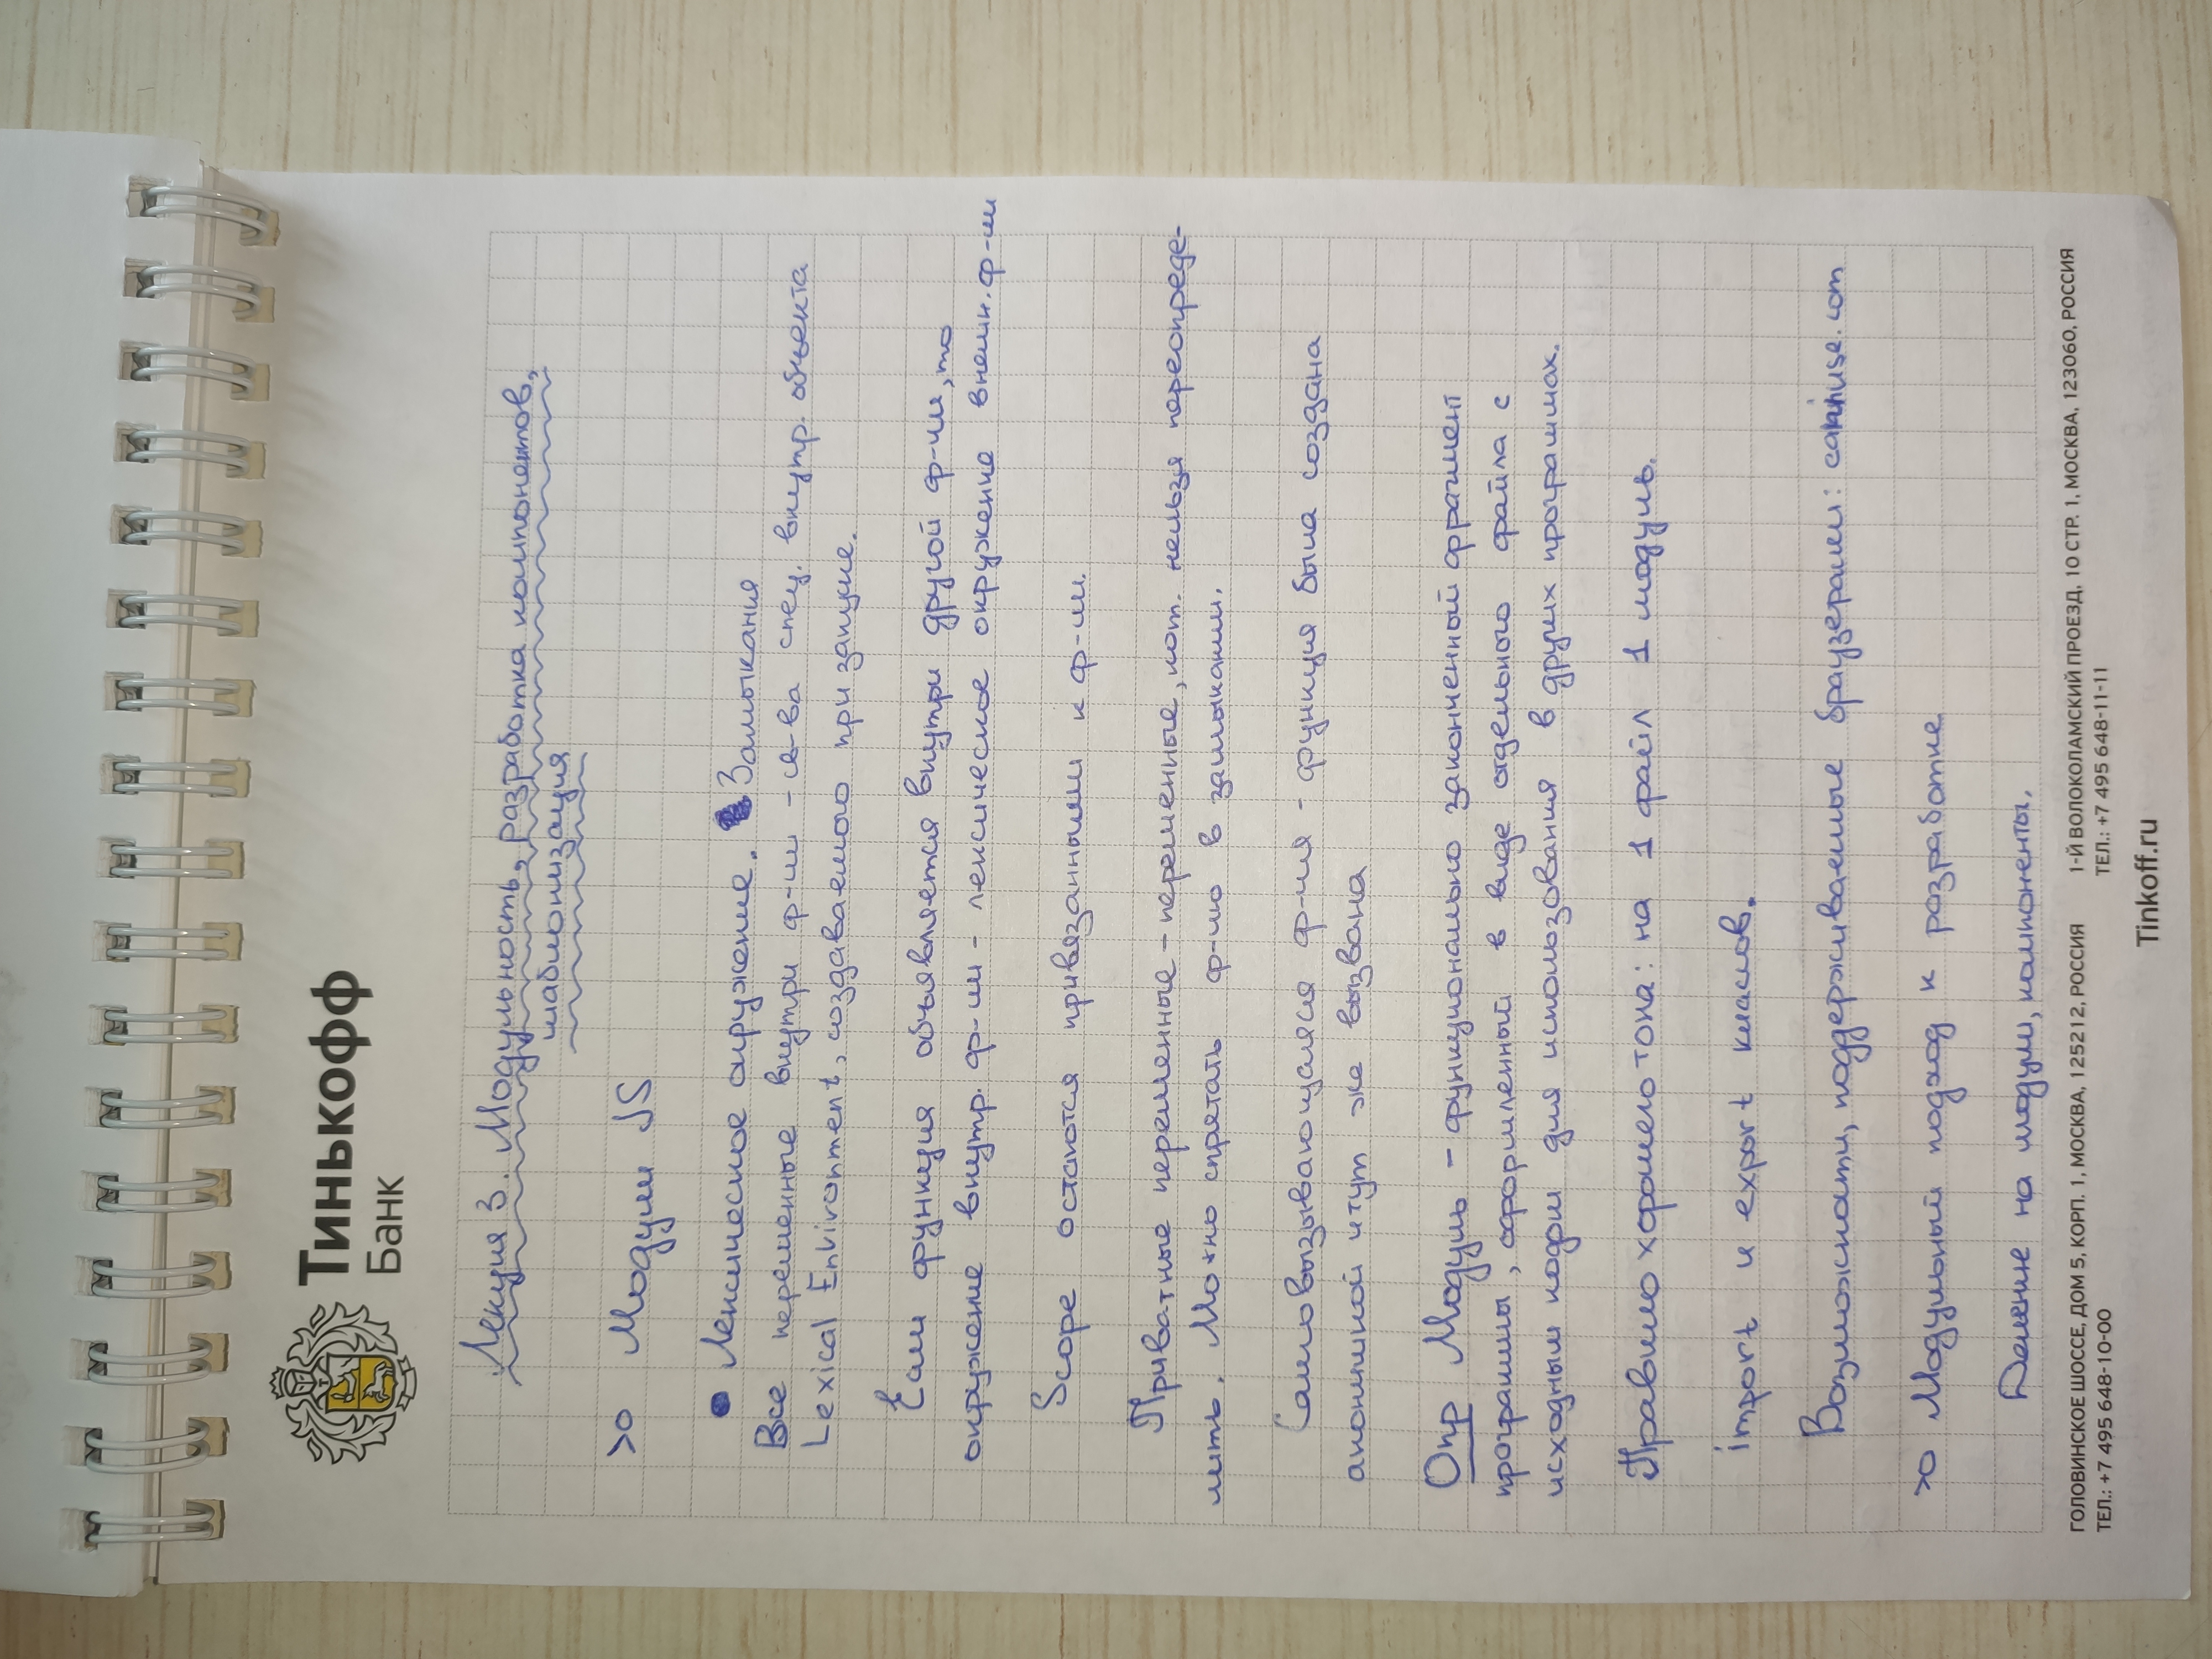 Тинькофф
Банк
Лекция 3. Модульность, разработка компонентов,
шаблонизация
>о Модули JS
• Лексическое окружение. Замыкания
Все переменные внутри ф-ии - св-ва спец. внутр. объекта
Lexical Environment, создаваемого при запуске.
Если функция объявляется внутри другой ф-ии, то
окружение внутр. ф-ии - лексическое окружение внешн. ф-ии
Scope остаются привязанными к ф-ии.
Приватные переменные - переменные, кот. нельзя переопреде-
лить. Можно спрятать ф-ию в замыкании.
Самовызывающаяся ф-ия - функция была создана
анонимной и тут же вызвана
Опр Модуль - функционально законченный фрагмент
программы, оформленный в виде отдельного файла с
исходным кодом для использования в других программах.
Правило хорошего тона: на 1 файл 1 модуль.
import и export классов.
Возможности, поддерживаемые браузерами: caniuse.com
>о Модульный подход к разработке
Деление на модули, компоненты.
ГОЛОВИНСКОЕ ШОССЕ, ДОМ 5, КОРП. 1, МОСКВА, 125212, РОССИЯ
ТЕЛ.: +7 495 648-10-00
1-Й ВОЛОКОЛАМСКИЙ ПРОЕЗД, 10 СТР. 1, МОСКВА, 123060, РОССИЯ
ТЕЛ.: +7 495 648-11-11
Tinkoff.ru